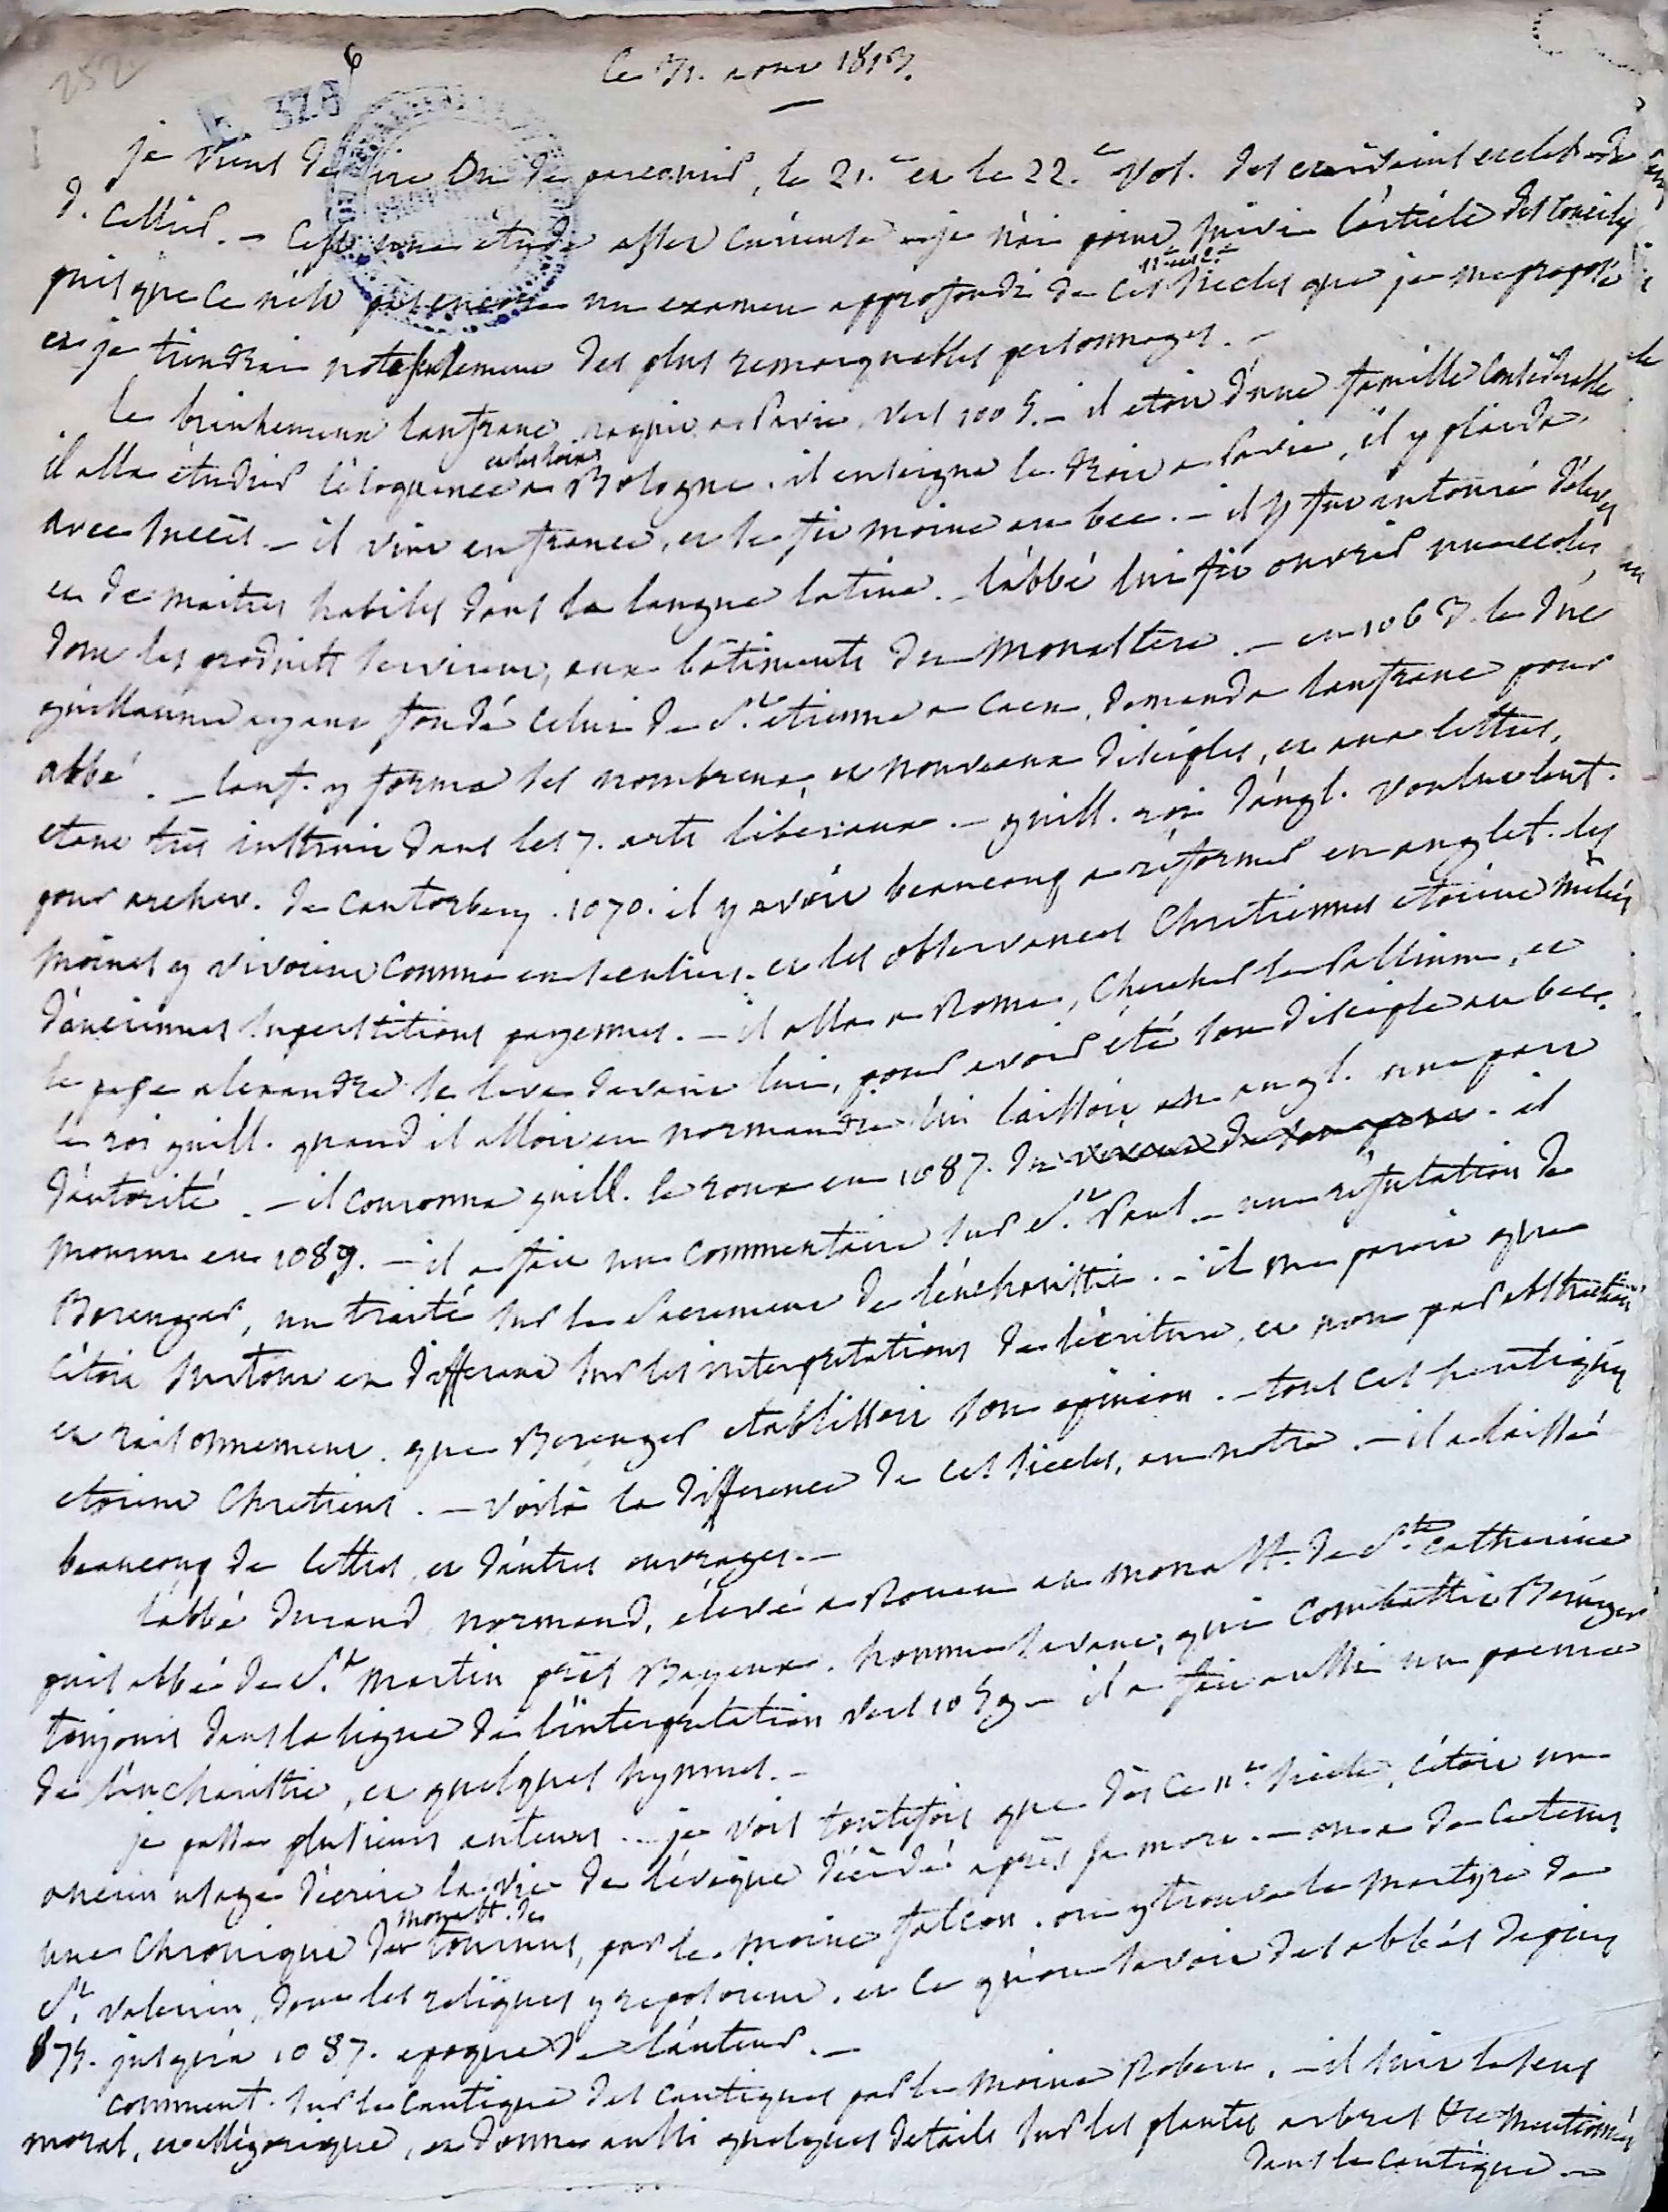 252
6
E. 326
le 31. aout 1813.
je viens de lire ou de parcourir, le 21.e et le 22.e vol. des ecrivains eccles. de
d. Cellier. – C'est une étude assez curieuse – je n'ai point suivi l'article des conciles
puisque ce n'est pas encore un examen approfondi de ces siecles que je me propose
11e et 12e
et je tiendrai note seulement des plus remarquables personnages. –
le bienheureux lanfranc naquit a Pavie, vers 1005. – il etoit d'une famille considerable
il alla étudier l'éloquence et les loix a Bologne. il enseigna le droit a Pavie, il y plaida
avec succès. – il vint en france, et se fit moine au bec. – il y fut entouré d'élèves
et de maitres habiles dans la langue latine. – l'abbé lui fit ouvrir une ecole,
dont les produits servirent, aux bâtiments du monastere. – en 1063. le duc
guillaume ayant fondé celui de St. etienne a Caen, demanda lanfranc pour
abbé. – lanf. y forma des nombreux, et nouveaux disciples, et aux lettres,
etant très instruit dans les 7. arts libéraux. – guill. roi d'angl. voulut lanf.
pour archev. de Cantorbery. 1070. il y avoit beaucoup a réformer en anglet. les
moines y vivoient comme en seculiers. et les observances Chrétiennes etoient mêlées
d'anciennes superstitions payennes. – il alla a Rome, chercher le Pallium, et
le pape alexandre se leva devant lui, pour avoir été son disciple au bec.
le roi guill. quand il alloit en normandie lui laissoit en angl. une part
d'autorité. – il couronna guill. le roux en 1087. il
mourut en 1089. – il a fait un commentaire sur St. Paul – une réfutation de
Berenger, un traité sur le Sacrement de l'eucharistie. – il me paroit que
c'étoit surtout en differant sur les interpretations de l'écriture, et non par abstraction
et raisonnement. que Berenger etablissoit son opinion. – tous ces heretiques
etoient Chretiens. – Voilà la difference de ces siecles, au notre. – il a laissé
beaucoup de lettres, et d'autres ouvrages. –
l'abbé durand, normand, élevé a Rouen au monast. de Ste. Catherine
puis abbé de St. Martin près Bayeux. homme savant, qui combattit Bérenger
toujours dans la ligne de l'interpretation vers 1059 – il a fait aussi un poeme
de l'eucharistie, et quelques hymnes. –
je passe plusieurs auteurs. – je vois toutefois que dès ce 11e. siecle, c'étoit un
ancien usage d'écrire la vie de l'évêque décédé après sa mort. – on a de ce tems
une Chronique du monast. de tournus, par le moine falcon. on y trouve le martyre de
St. Valerien, dont les reliques y reposoient. et ce qu'on savoit des abbés depuis
875. jusqu'à 1087. epoque de l'auteur. –
comment. sur le Cantique des Cantiques par le moine Robert. – il suit le sens
moral, et allégorique, et donne aussi quelques details sur les plantes arbres &c mentionnés
dans le cantique –